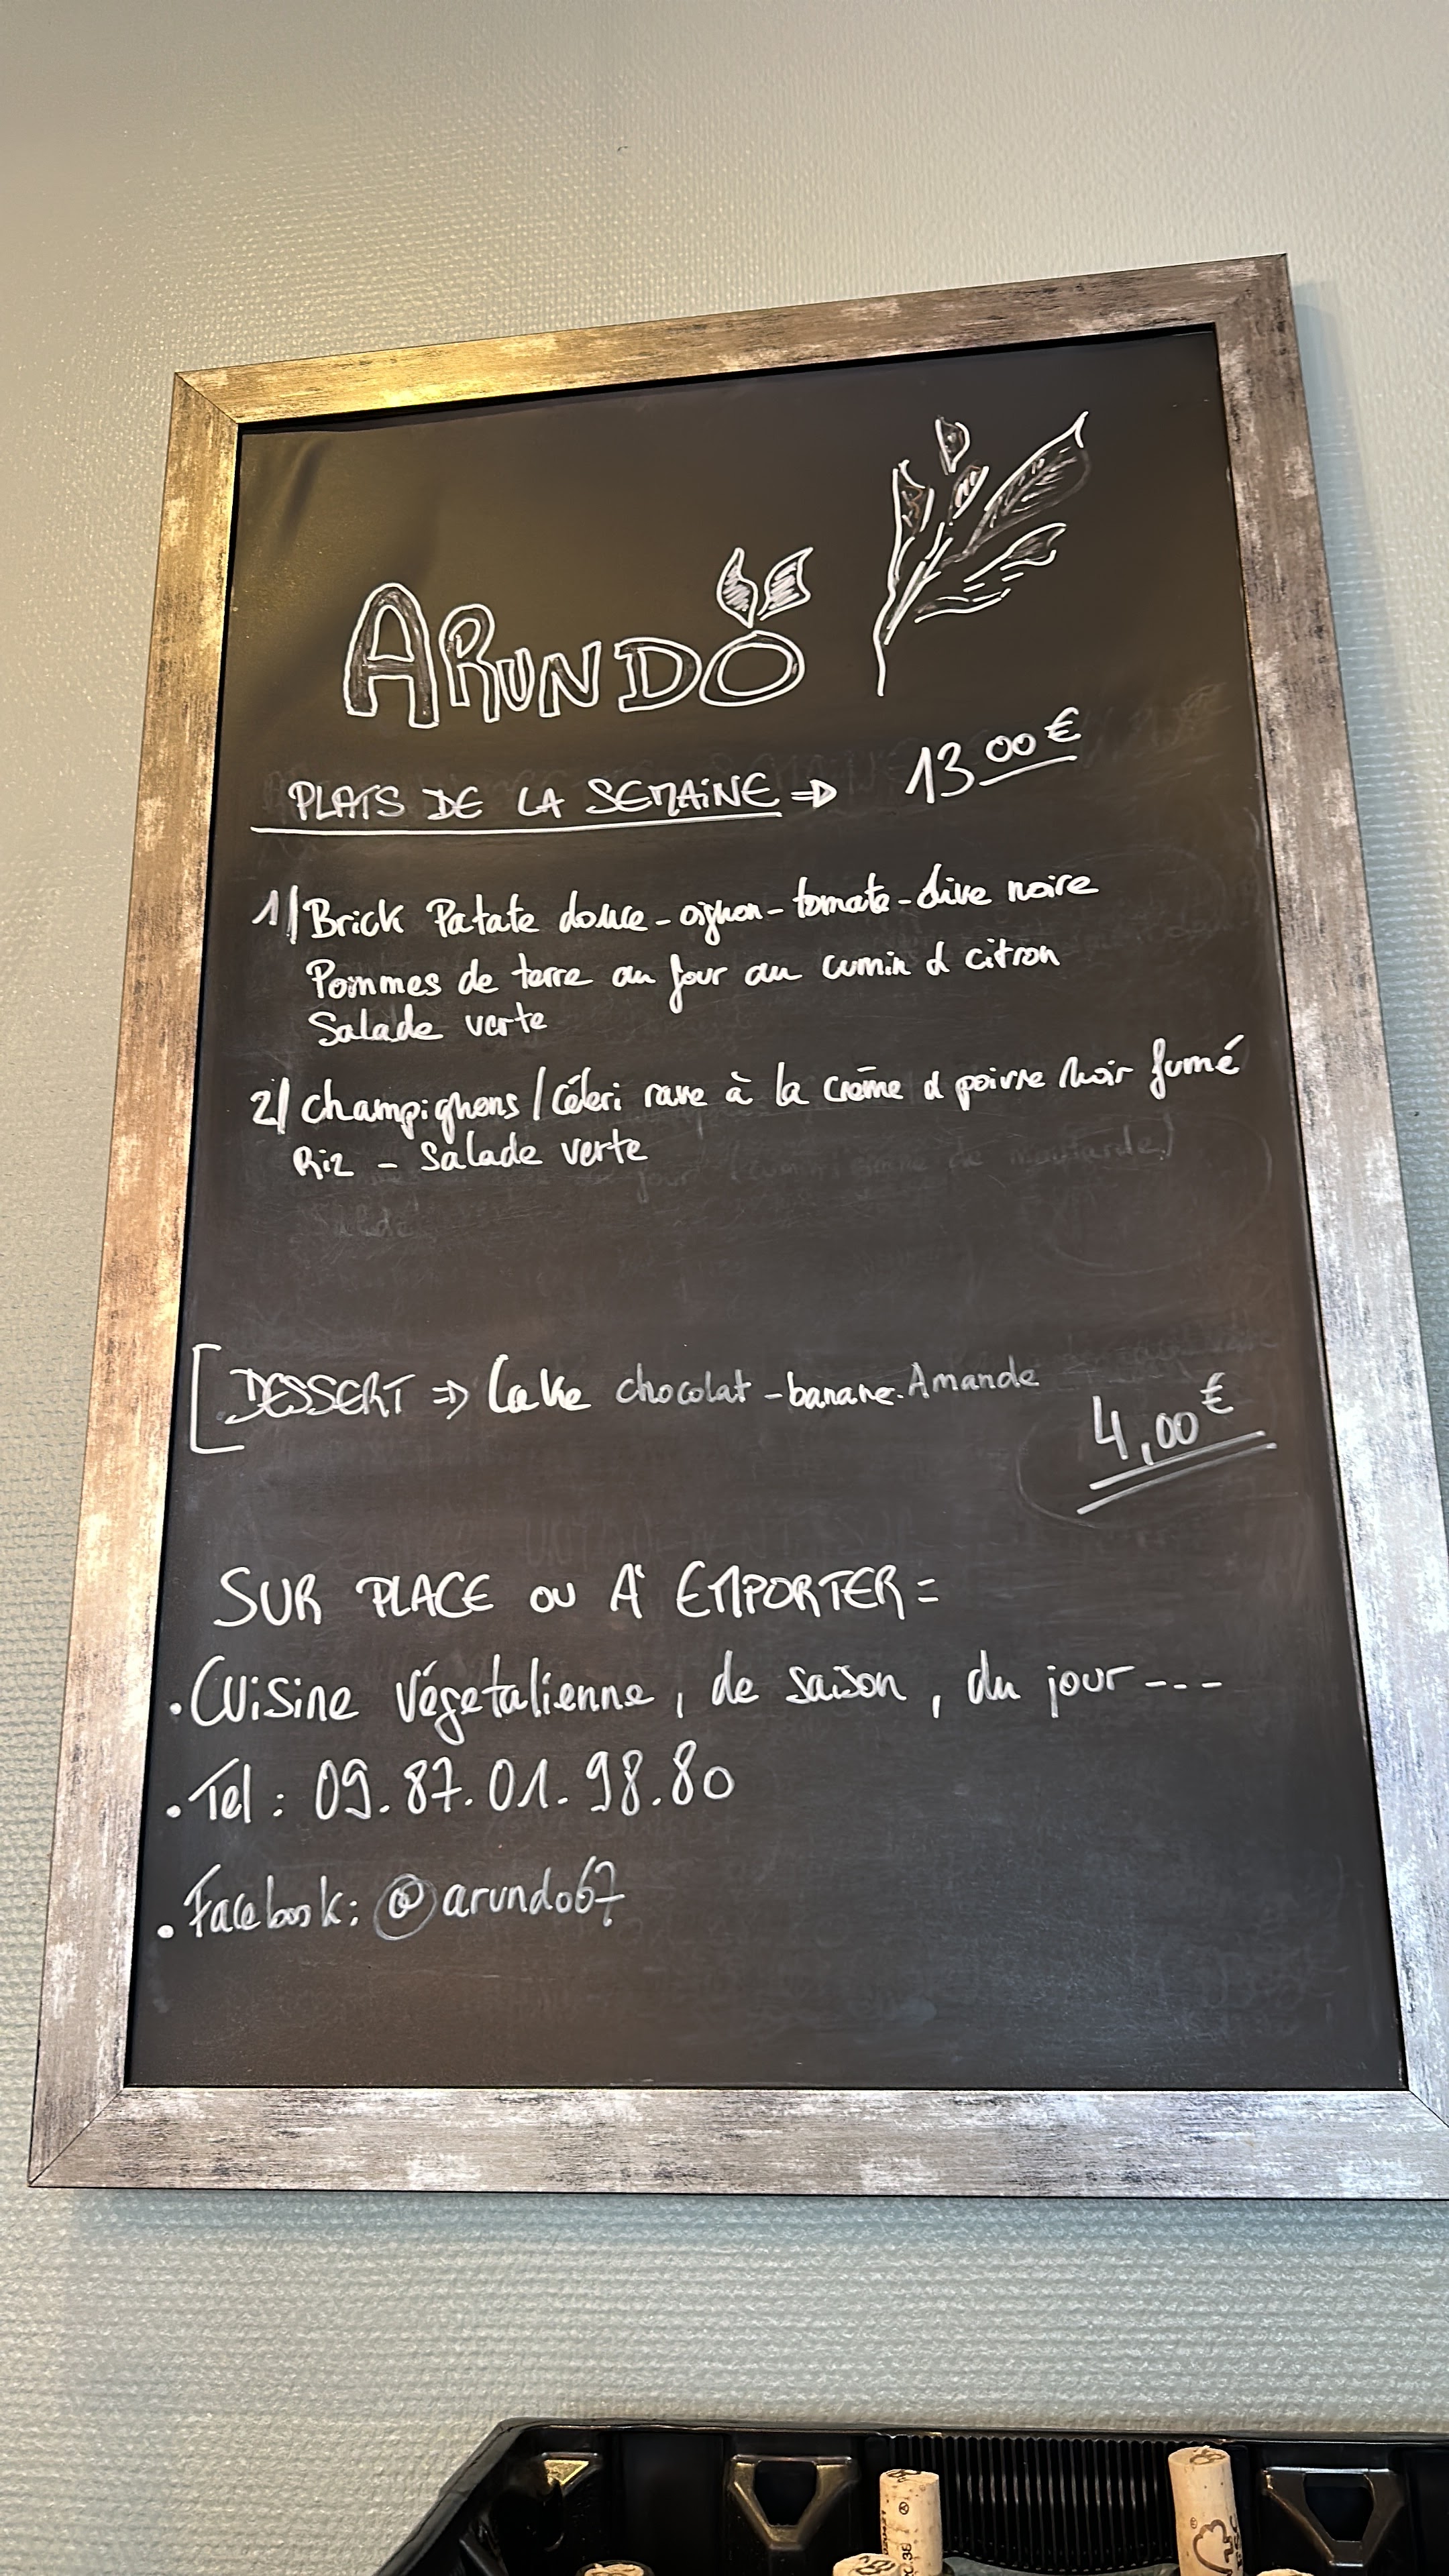 ARUNDO
PLATS DE LA SEMAINE => 13 00 €
1/ Brick Patate douce - oignon - tomate - olive noire
Pommes de terre au four au cumin & citron
Salade verte
2/ Champignons / Céleri rave à la crème & poivre noir fumé
Riz - Salade verte
[DESSERT => Cake chocolat - banane. Amande
4,00 €
SUR PLACE OU A' EMPORTER =
. Cuisine Végetalienne, de saison, du jour ---
. Tel : 09.87.01.98.80
. Facebook: @arundo67